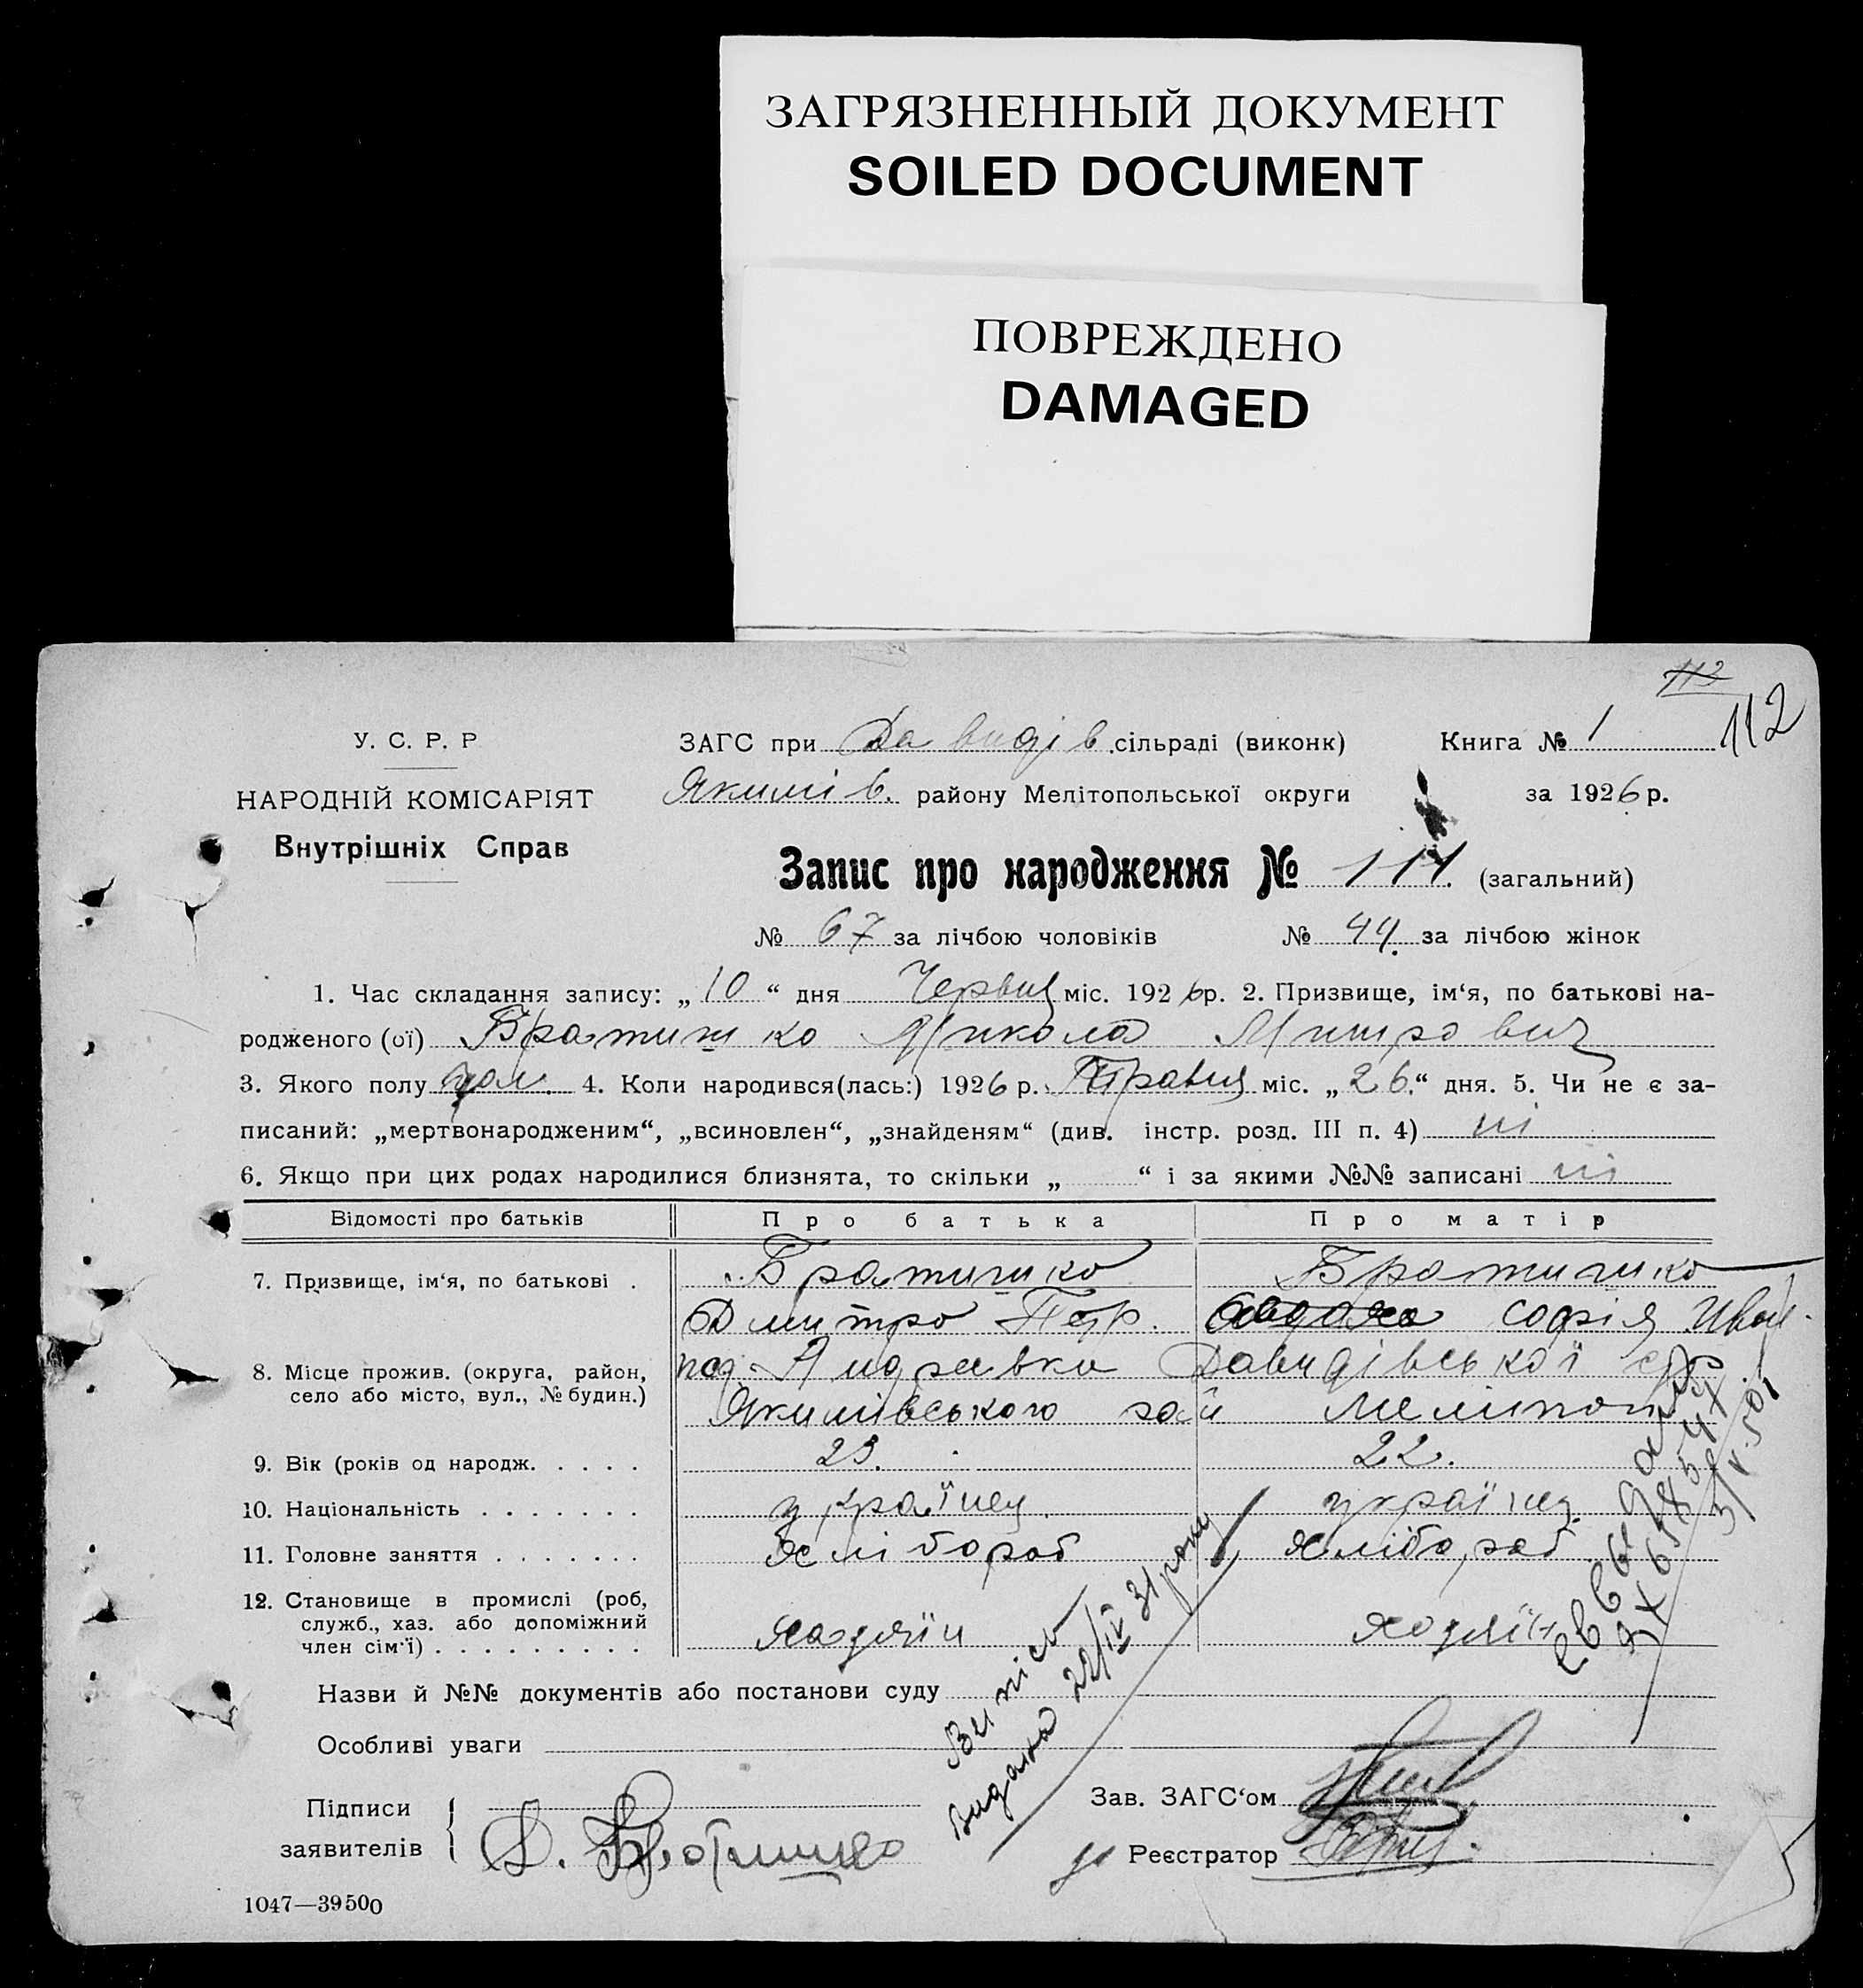 ЗАГРЯЗНЕННЫЙ ДОКУМЕНТ
SOILED DOCUMENT
ПОВРЕЖДЕНО
DAMAGED
113
112
У. С. Р. Р
НАРОДНІЙ КОМІСАРІЯТ
Внутрішніх Справ
ЗАГС при Давидів сільраді (виконк) Книга № 1
Якимів. району Мелітопольської округи за 1926 р.
Запис про народження № 111. (загальний)
№ 67 за лічбою чоловіків № 44. за лічбою жінок
1. Час складання запису: „10“ дня Червня міс. 1926р. 2. Призвище, ім‘я, по батькові на-
родженого (ої) Братишко Микола Митрович
3. Якого полу чол. 4. Коли народився(лась:) 1926 р. Травня міс. „26.“ дня. 5. Чи не є за-
писаний: „мертвонародженим“, „всиновлен“, „знайденям“ (див. інстр. розд. III п. 4) ні
6. Якщо при цих родах народилися близнята, то скільки „ “ і за якими №№ записані ні
Відомості про батьків Про батька Про матір
7. Призвище, ім‘я, по батькові . Братишко Братишко
Дмитро Петр. Софія Иван.
8. Місце прожив. (округа, район,
село або місто, вул., № будин.)
Андраевка Давидівської с/р
Якимівського рай Меліпол
9. Вік (років од народж. . . . . 23. 22.
10. Національність . . . . . . . українец українец
11. Головне заняття . . . . . . . хлібороб хлібороб
12. Становище в промислі (роб,
служб., хаз. або допоміжний
член сім‘ї) . . . . . . . . . хазяїн хозяїн
Назви й №№ документів або постанови суду
Особливі уваги
Випісь
видана 22/IV 31 року
Підписи
заявителів
Д. Братишко
Зав. ЗАГС‘ом
Реєстратор
1047—39500